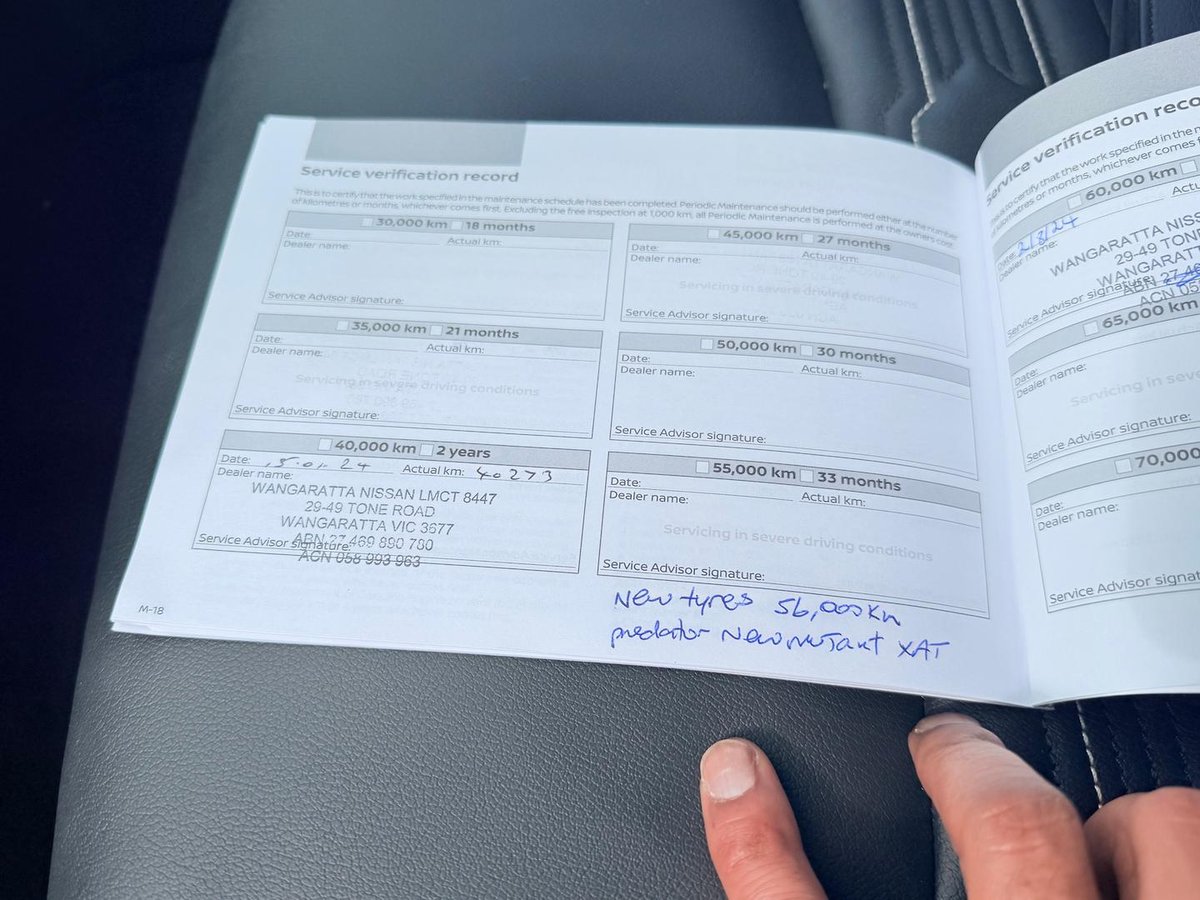 Service verification record
This is to certify that the work specified in the maintenance schedule has been completed. Periodic Maintenance should be performed either at the number
of kilometres or months, whichever comes first. Excluding the free inspection at 1,000 km, all Periodic Maintenance is performed at the owners cost.
30,000 km 18 months
Date: Actual km:
Dealer name:
Service Advisor signature:
35,000 km 21 months
Date: Actual km:
Dealer name:
Servicing in severe driving conditions
Service Advisor signature:
40,000 km 2 years
Date: 15.01.24 Actual km: 40273
Dealer name:
WANGARATTA NISSAN LMCT 8447
29-49 TONE ROAD
WANGARATTA VIC 3677
ABN 27 469 890 780
Service Advisor signature:
ACN 058 993 963
M-18
45,000 km 27 months
Date: Actual km:
Dealer name:
Servicing in severe driving conditions
Service Advisor signature:
50,000 km 30 months
Date: Actual km:
Dealer name:
Service Advisor signature:
55,000 km 33 months
Date: Actual km:
Dealer name:
Servicing in severe driving conditions
Service Advisor signature:
New tyres 56,000km
predator New mutant XAT
Service verification reco
This is to certify that the work specified in the m
of kilometres or months, whichever comes fir
60,000 km
Date: 2/8/24 Actu
Dealer name:
WANGARATTA NISS
29-49 TONE
WANGARATT
ABN 27 46
Service Advisor signature:
ACN 058
65,000 km
Date:
Dealer name:
Servicing in seve
Service Advisor signature:
70,000
Date:
Dealer name:
Service Advisor signat